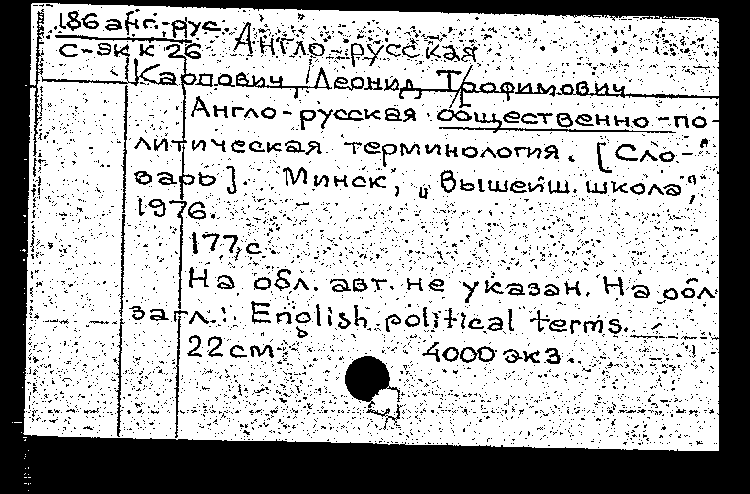 186 анг.-рус.
С-ЭК К 26 Англо-русская
Карпович, Леонид Трофимович
Англо-русская общественно-по-
литическая терминология. [Сло-
варь]. Минск, „Вышейш. школа",
1976.
177 с.
На обл. авт. не указан. На обл
загл.: English political terms.
22 см 4000 экз.